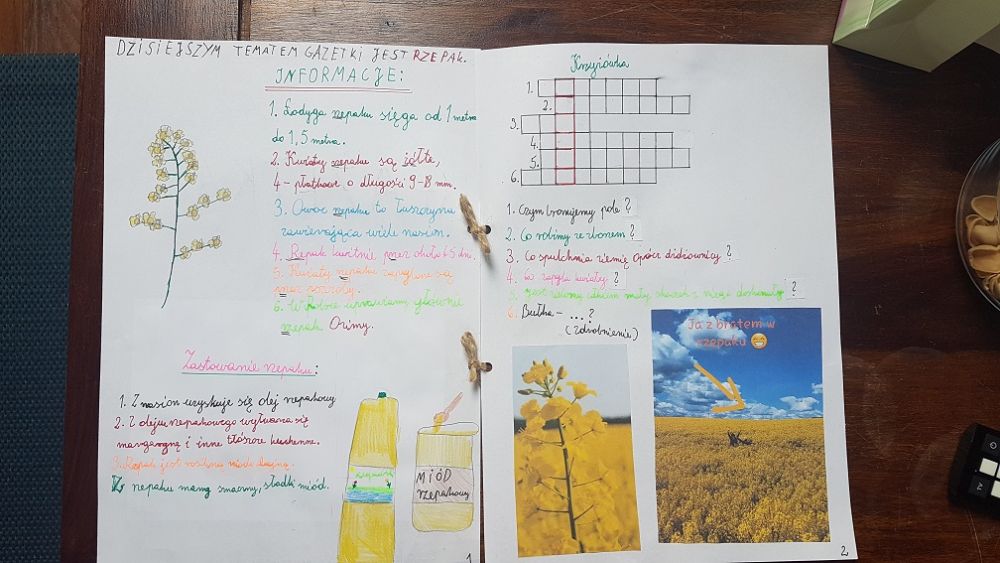 DZISIEJSZYM TEMATEM GAZETKI JEST RZEPAK.
INFORMACJE:
1. Łodyga rzepaku sięga od 1 metra
do 1,5 metra.
2. Kwiaty rzepaku są żółte,
4-płatkowe o długości 9-18 mm.
3. Owoc rzepaku to łuszczyna
zawierająca wiele nasion.
4. Rzepak kwitnie przez około 45 dni.
5. Kwiaty rzepaku zapylane są
przez pszczoły.
6. W Polsce uprawiamy głównie
rzepak Ozimy.
Zastowanie rzepaku:
1. Z nasion uzyskuje się olej rzepakowy
2. Z oleju rzepakowego wytwarza się
margarynę i inne tłuszcze kuchenne.
3. Rzepak jest rośliną miododajną.
Z rzepaku mamy smaczny, słodki miód.
MIÓD
rzepakowy
1
Krzyżówka
1.
2.
3.
4.
5.
6.
1. Czym bronujemy pole?
2. Co robimy ze zbożem?
3. Co spulchnia ziemię oprócz dżdżownicy?
4. Co zapyla kwiaty?
5. Jest
6. Bułka - ...?
(zdrobnienie)
Ja z bratem w
rzepaku 😁
2